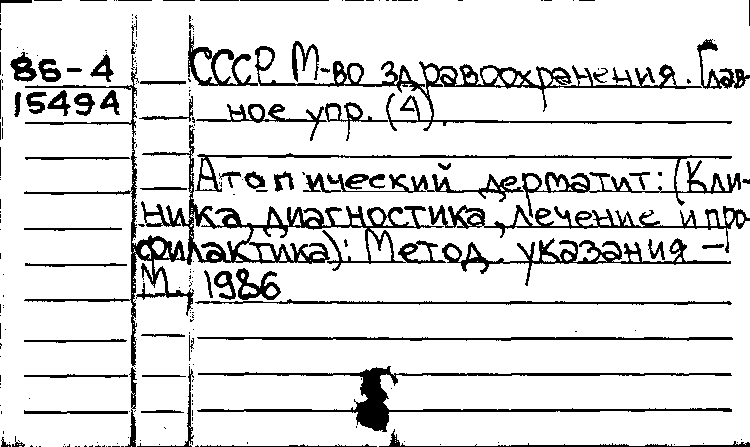 86-4
15494
СССР. М-во здравоохранения. Глав-
ное упр. (4).
Атопический дерматит: (Кли-
ника, диагностика, лечение и про-
филактика): Метод. указания –
М. 1986